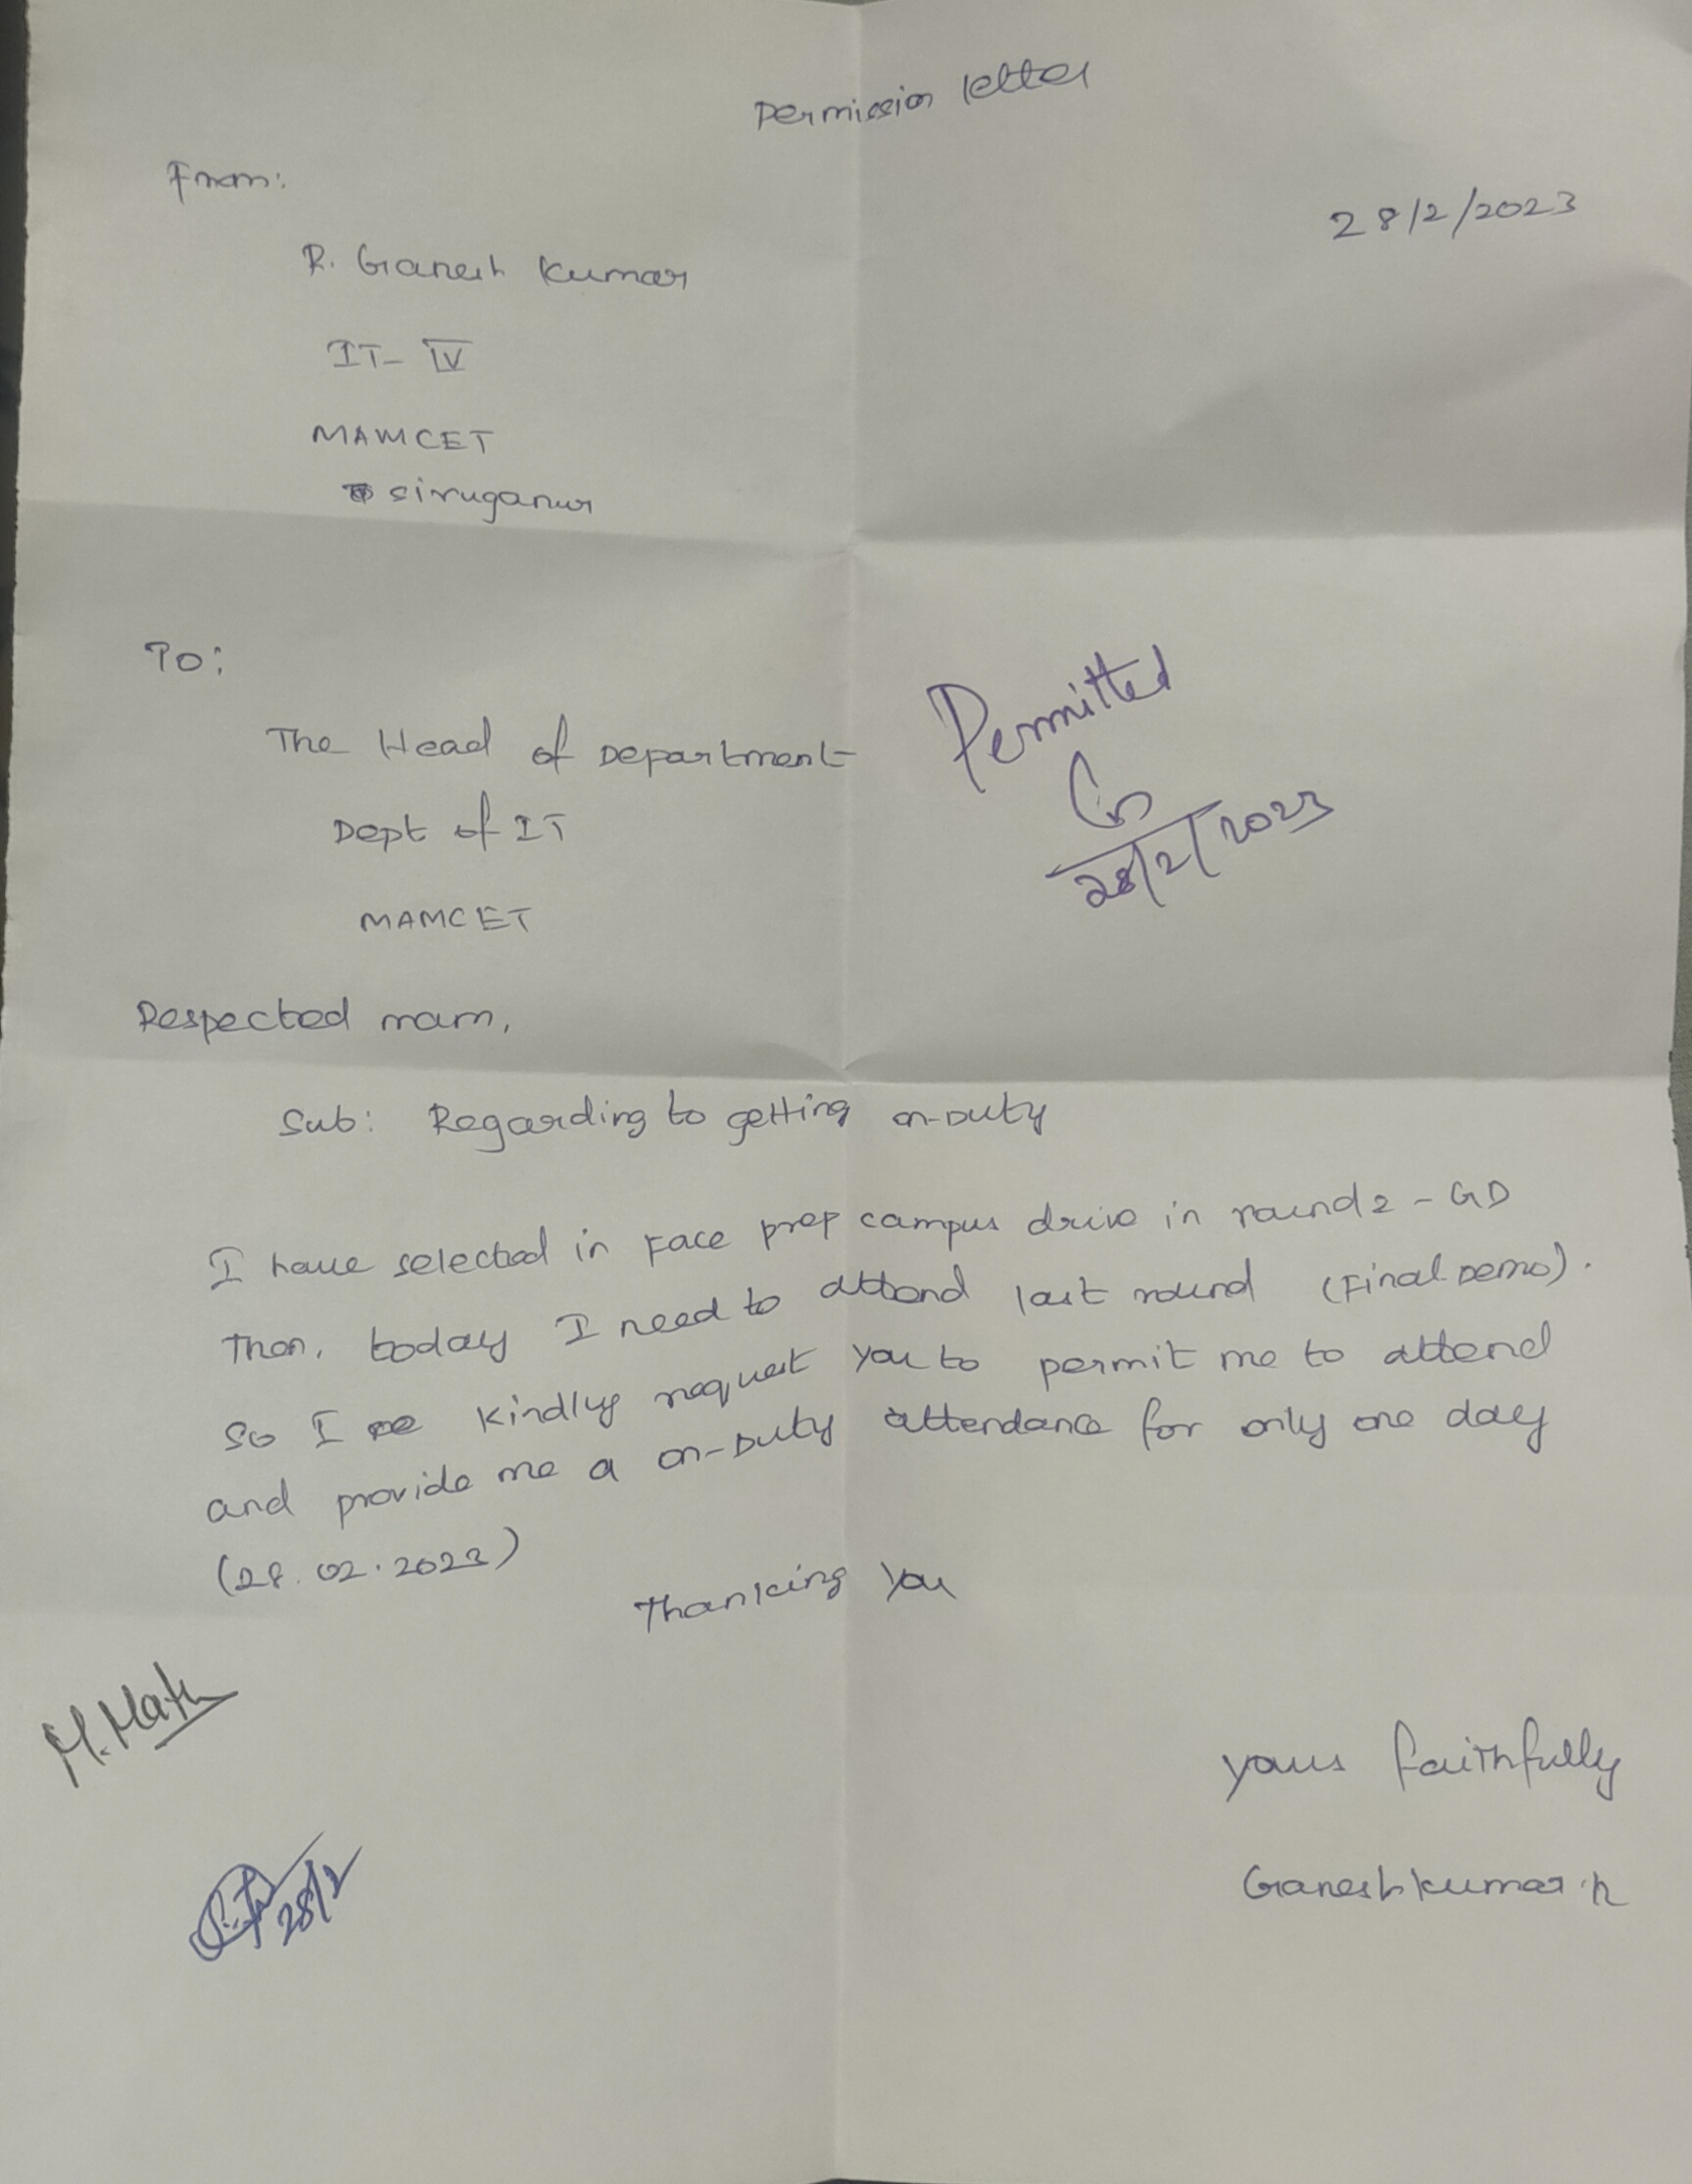 Permission letter
From:
28/2/2023
R. Ganesh Kumar
IT- IV
MAMCET
siruganur
To:
The Head of Department
Dept of IT
MAMCET
Permitted
28/2/2023
Respected mam,
Sub: Regarding to getting on-Duty
I have selected in Face prep campus drive in round 2 - GD
Then, today I need to attend last round (Final Demo).
So I kindly request you to permit me to attend
and provide me a on-Duty attendance for only one day
(28.02.2023)
Thanking you
M. Math
28/2
yours faithfully
Ganesh kumar .R